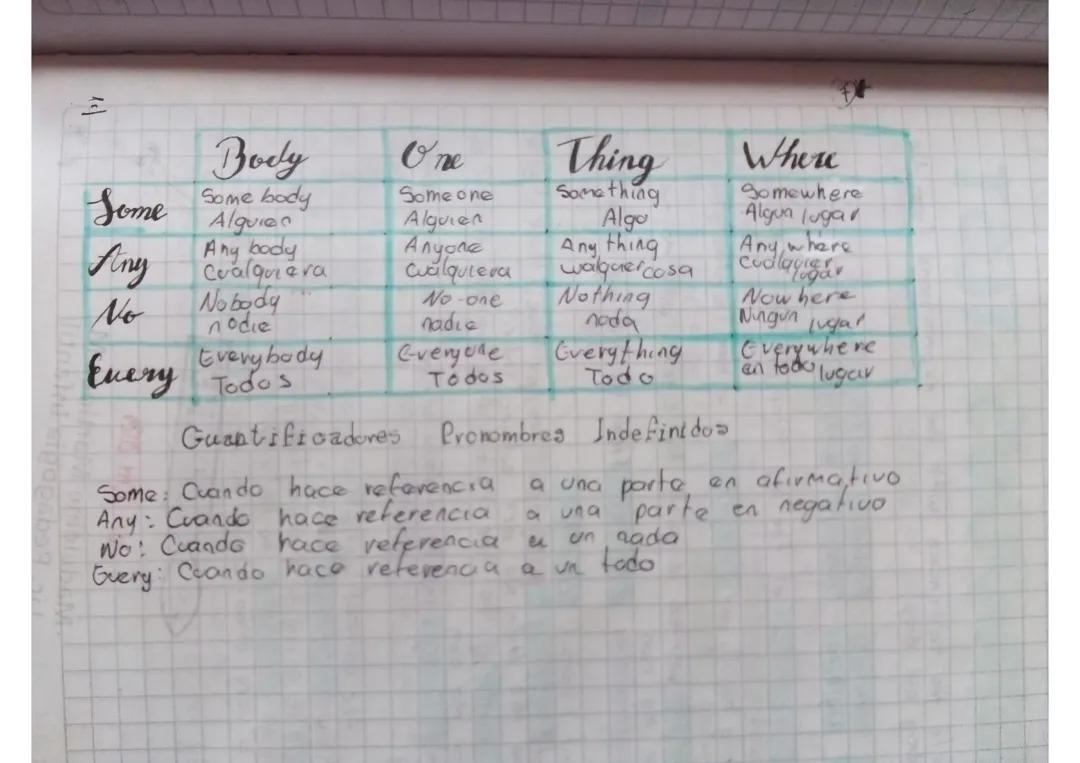 Body One Thing Where
Some
Some body Someone Something Somewhere
Alguien Alguien Algo Algun lugar
Any
Any body Anyone Any thing Any where
Cualquiera Cualquiera cualquier cosa Cualquier lugar
No
Nobody No-one Nothing Nowhere
nadie nadie nada Ningun lugar
Every
Everybody Everyone Everything Everywhere
Todos Todos Todo en todo lugar
Cuantificadores Pronombres Indefinidos
Some: Cuando hace referencia a una parte en afirmativo
Any: Cuando hace referencia a una parte en negativo
No: Cuando hace referencia a un nada
Every: Cuando hace referencia a un todo